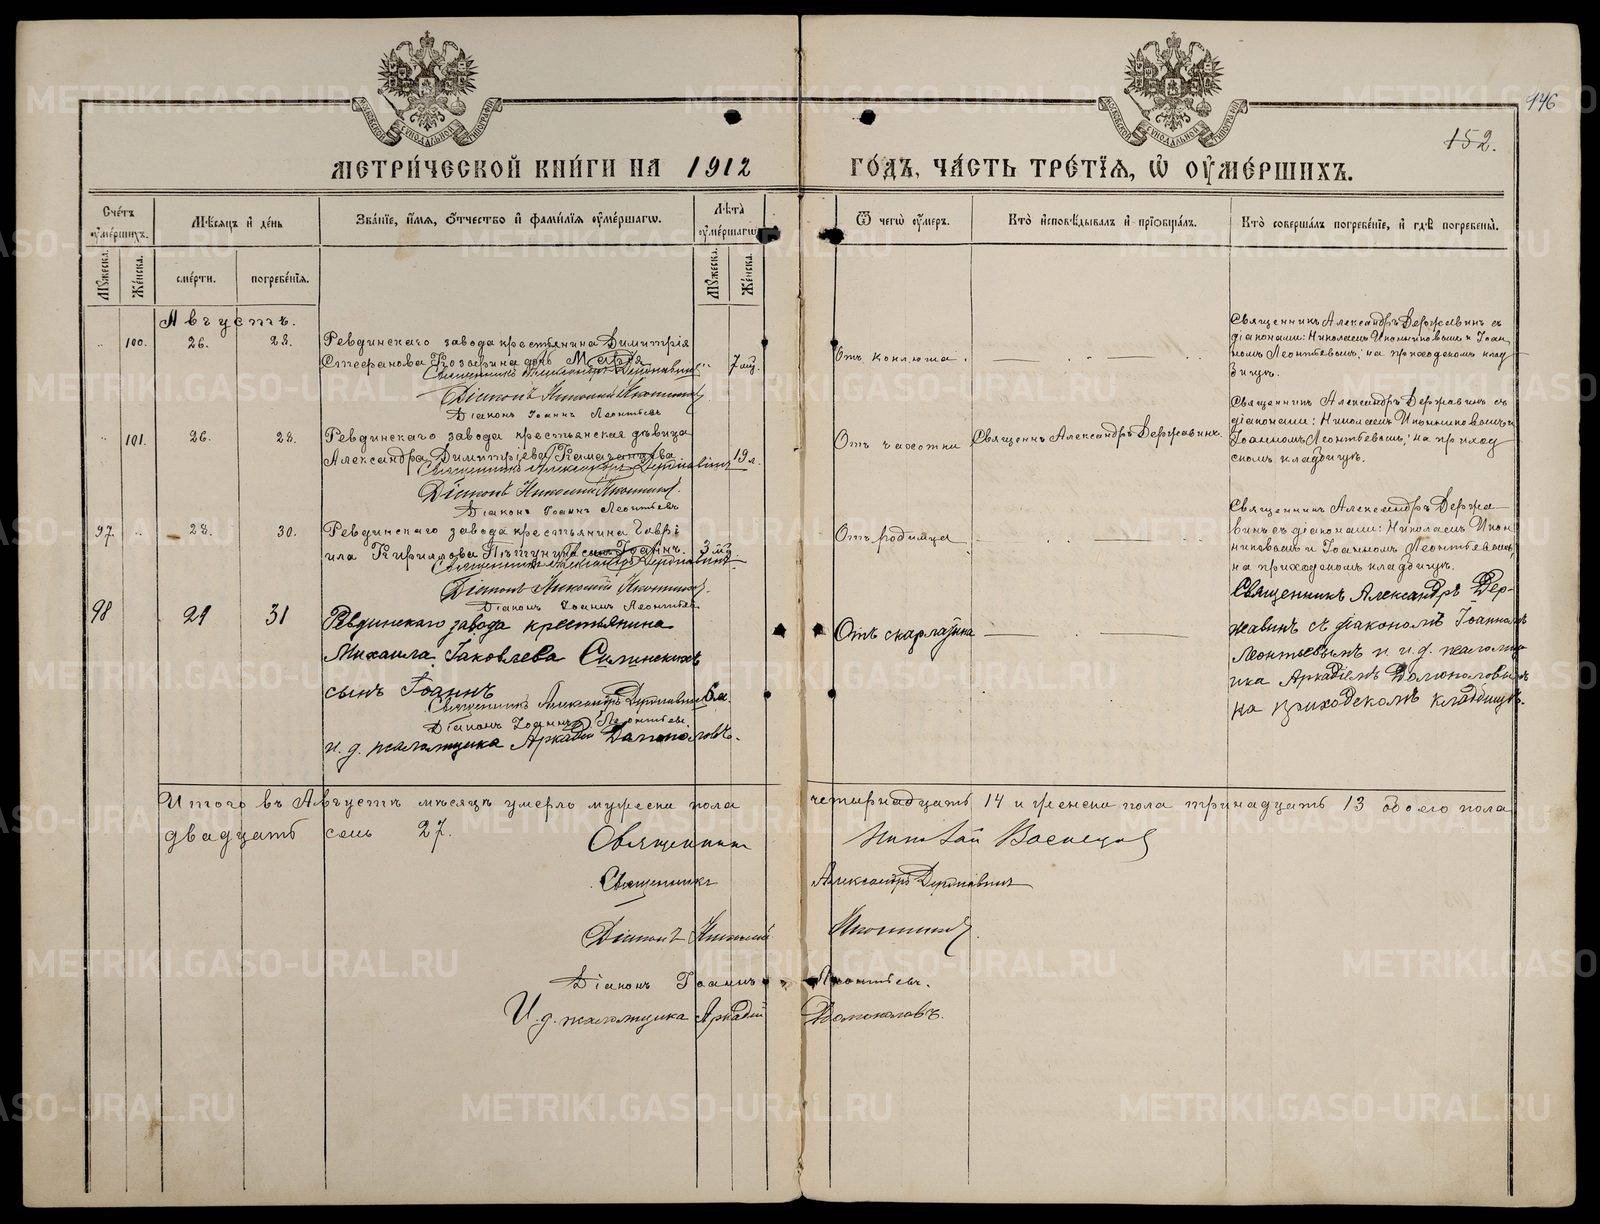 946
152.
МЕТРИ́ЧЕСКОЙ КНИ́ГИ НА 1912 ГО́ДЪ, ЧА́СТЬ ТРЕ́ТЇѦ, Ѽ ОУМЕ́РШИХЪ.
Сче́тъ оумершихъ.
Мѣ́сѧцъ и де́нь
Зва́нїе, и́мѧ, о́тчество и фами́лїѧ оумершагѡ.
Лѣ́та оумершагѡ
Ѿ чегѡ̀ оумеръ.
Кто̀ исповѣ́дывалъ и прїобща́лъ.
Кто̀ соверша́лъ погребе́нїе, и гдѣ̀ погребены̀.
Мꙋжеска.
Же́нска.
сме́рти.
погребе́нїѧ.
Мꙋжеска.
Же́нска.
Августъ.
100.
26.
28.
Ревдинскаго завода крестьянина Димитрія
Стефанова Козырина дочь Марія
7 м.
Священникъ Александръ Державинъ
Діаконъ Николай Иконников
Діаконъ Іоаннъ Леонтьевъ
Отъ коклюша.
Священникъ Александръ Державинъ съ
діаконами: Николаемъ Иконниковымъ и Іоан
номъ Леонтьевымъ; на приходскомъ клад
бищѣ.
101.
26.
28.
Ревдинскаго завода крестьянская дѣвица
Александра Димитріева
19 л.
Священникъ Александръ Державинъ
Діаконъ Николай Иконников.
Діаконъ Іоаннъ Леонтьевъ
Отъ чахотки
Священ. Александръ Державинъ.
Священникъ Александръ Державинъ съ
діаконами: Николаемъ Иконниковымъ и
Іоанномъ Леонтьевымъ; на приход
скомъ кладбищѣ.
97.
28.
30.
Ревдинскаго завода крестьянина Гаврі
ила Кирилова сынъ Іоаннъ.
3
Священникъ Александръ Державинъ
Діаконъ Николай Иконников.
Діаконъ Іоаннъ Леонтьевъ
Отъ родимца
Священникъ Александръ Держа
винъ съ діаконами: Николаемъ Икон
никовымъ и Іоанномъ Леонтьевымъ,
на приходскомъ кладбищѣ.
98
29
31
Ревдинскаго завода крестьянина
Михаила Іаковлева
сынъ Іоаннъ
6 м
Священникъ Александръ Державинъ
Діаконъ Іоаннъ Леонтьевъ.
и. д. псаломщика Аркадій
Отъ скарлатина
Священникъ Александръ Дер-
жавинъ съ діакономъ Іоанномъ
Леонтьевымъ и и. д. псаломщ
ика Аркадіемъ
на приходскомъ кладбищѣ.
Итого въ Августѣ мѣсяцѣ умерло мужеска пола четырнадцать 14 и женска пола тринадцать 13 обоего пола
двадцать семь 27.
Священникъ Николай
Священникъ Александръ Державинъ
Діаконъ Николай Иконников.
Діаконъ Іоаннъ Леонтьевъ.
И. д. псаломщика Аркадій
METRIKI.GASO-URAL.RU